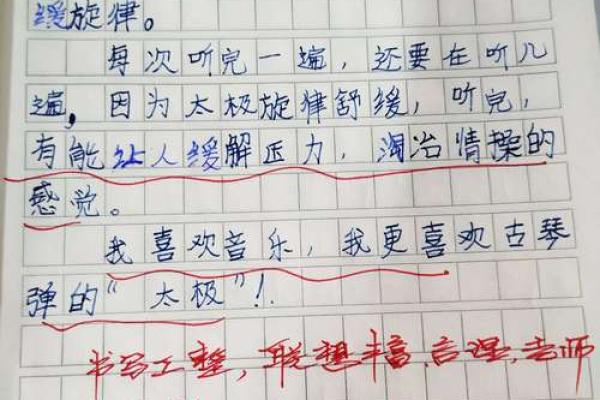 缓旋律。
每次听完一遍，还要在听几
遍，因为太极旋律舒缓，听完，
有能让人缓解压力，淘冶情操的
感觉。
我喜欢音乐，我更喜欢古琴
弹的“太极”！
书写工整，联想丰富，合理，老师